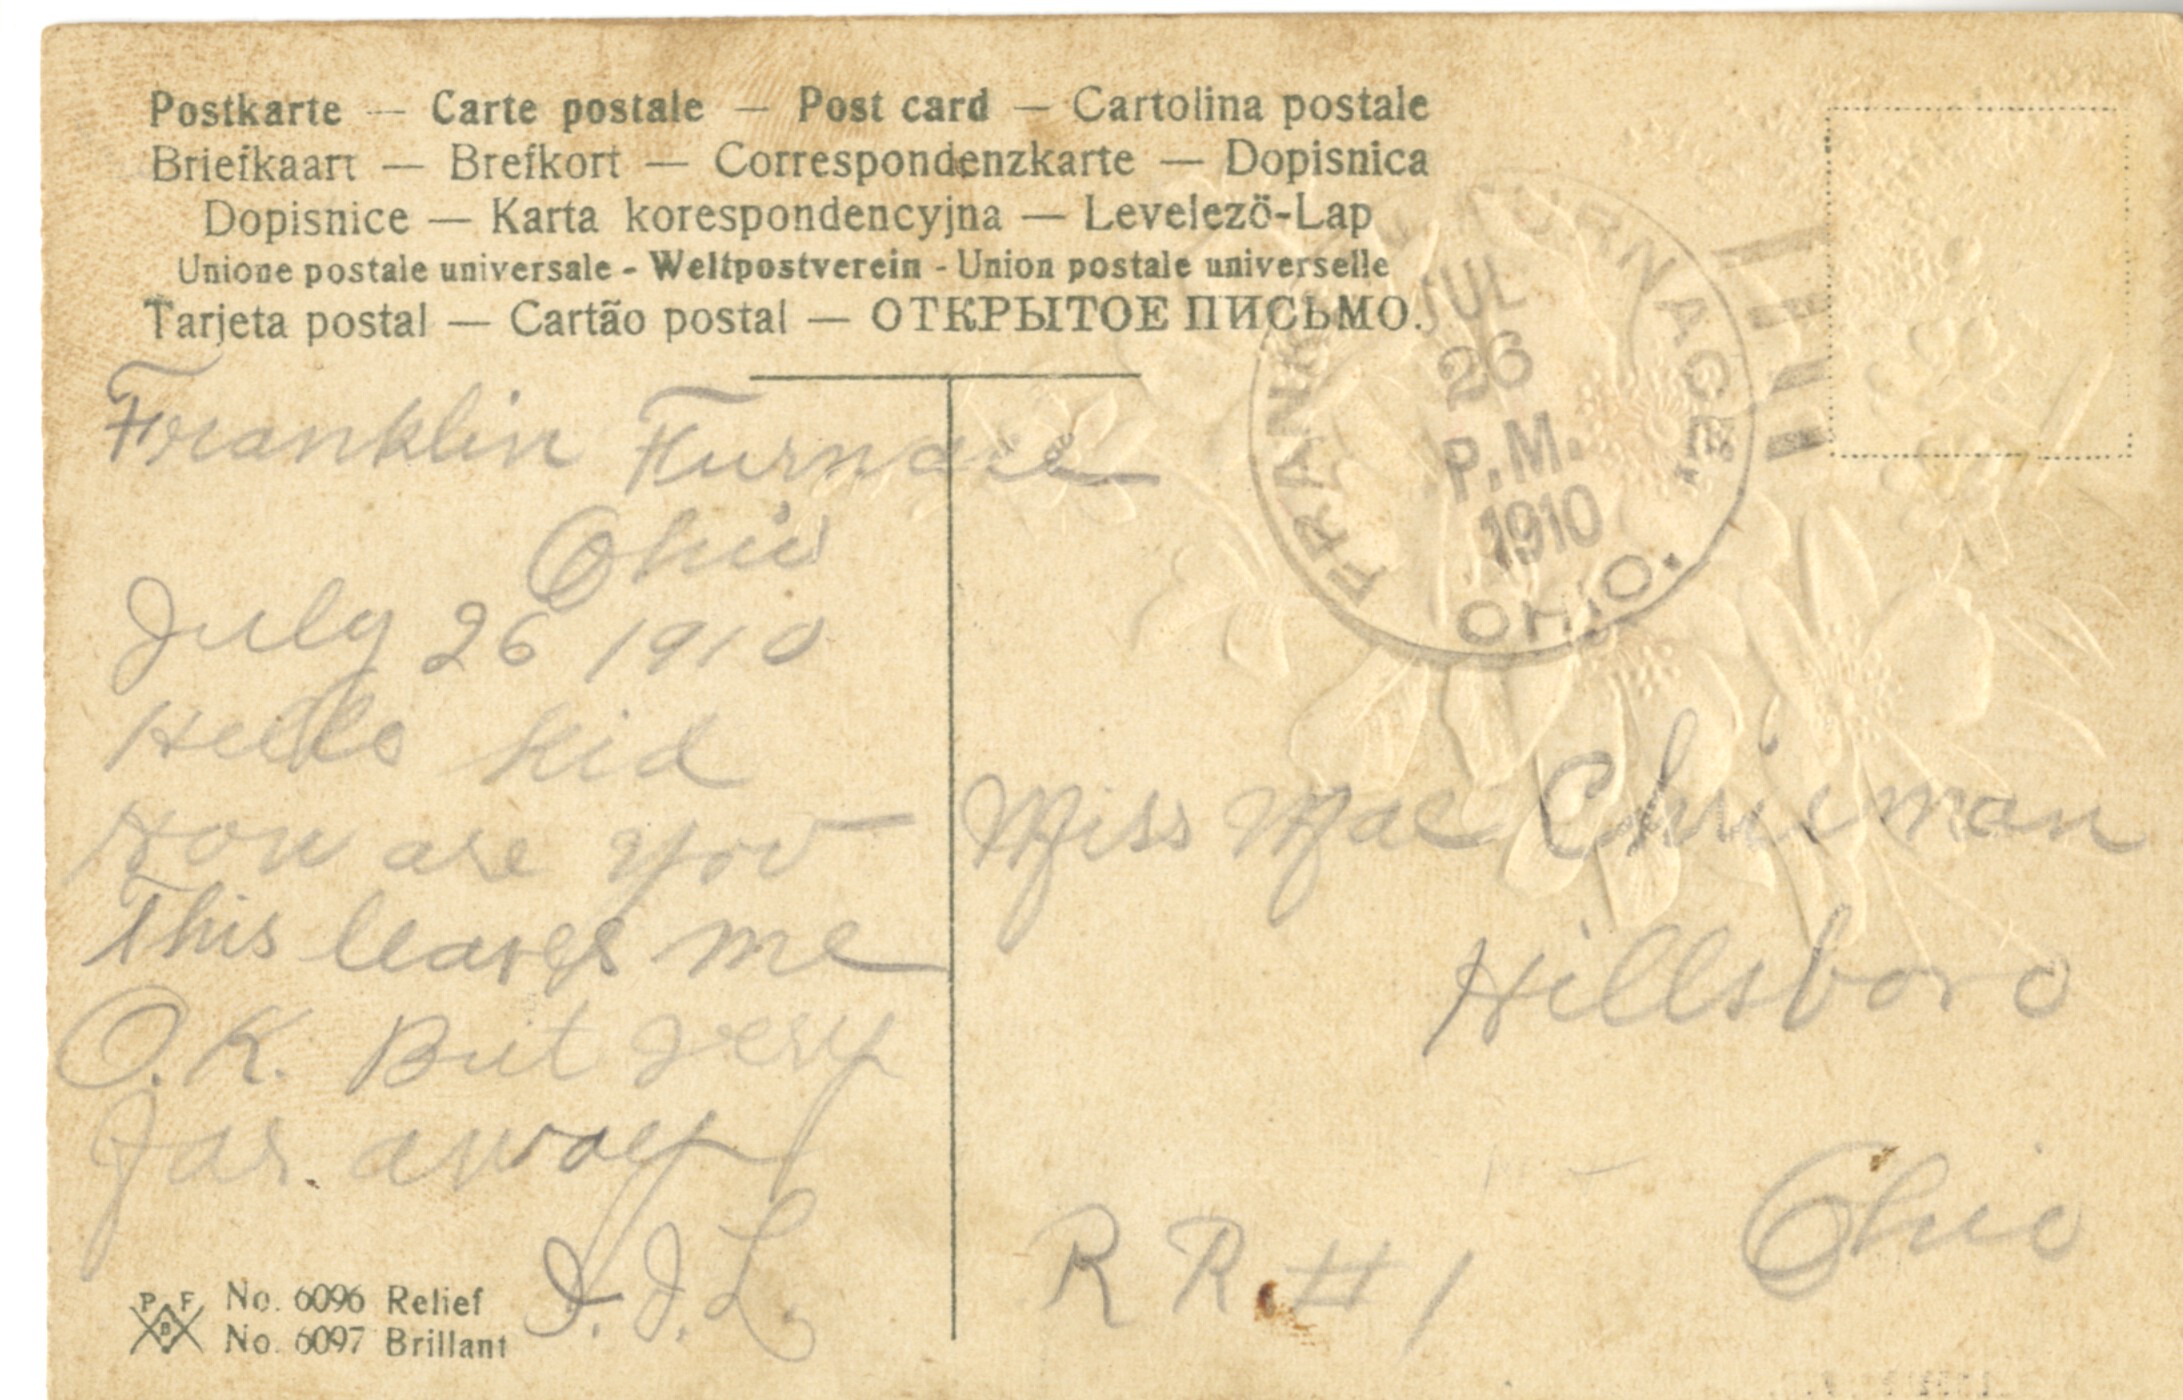 Postkarte — Carte postale — Post card — Cartolina postale
Briefkaart — Brefkort — Correspondenzkarte — Dopisnica
Dopisnice — Karta korespondencyjna — Levelezö-Lap
Unione postale universale - Weltpostverein - Union postale universelle
Tarjeta postal — Cartão postal — ОТКРЫТОЕ ПИСЬМО.
JUL
26
P.M.
1910
OHIO.
Franklin Furnace
Ohio
July 26 1910
Hello Kid
How are you
This leaves me
O.K. But very
far away
J. J. L.
Miss Mae Chrisman
Hillsboro
Ohio
R R. # 1
P F
B
No. 6096 Relief
No. 6097 Brillant